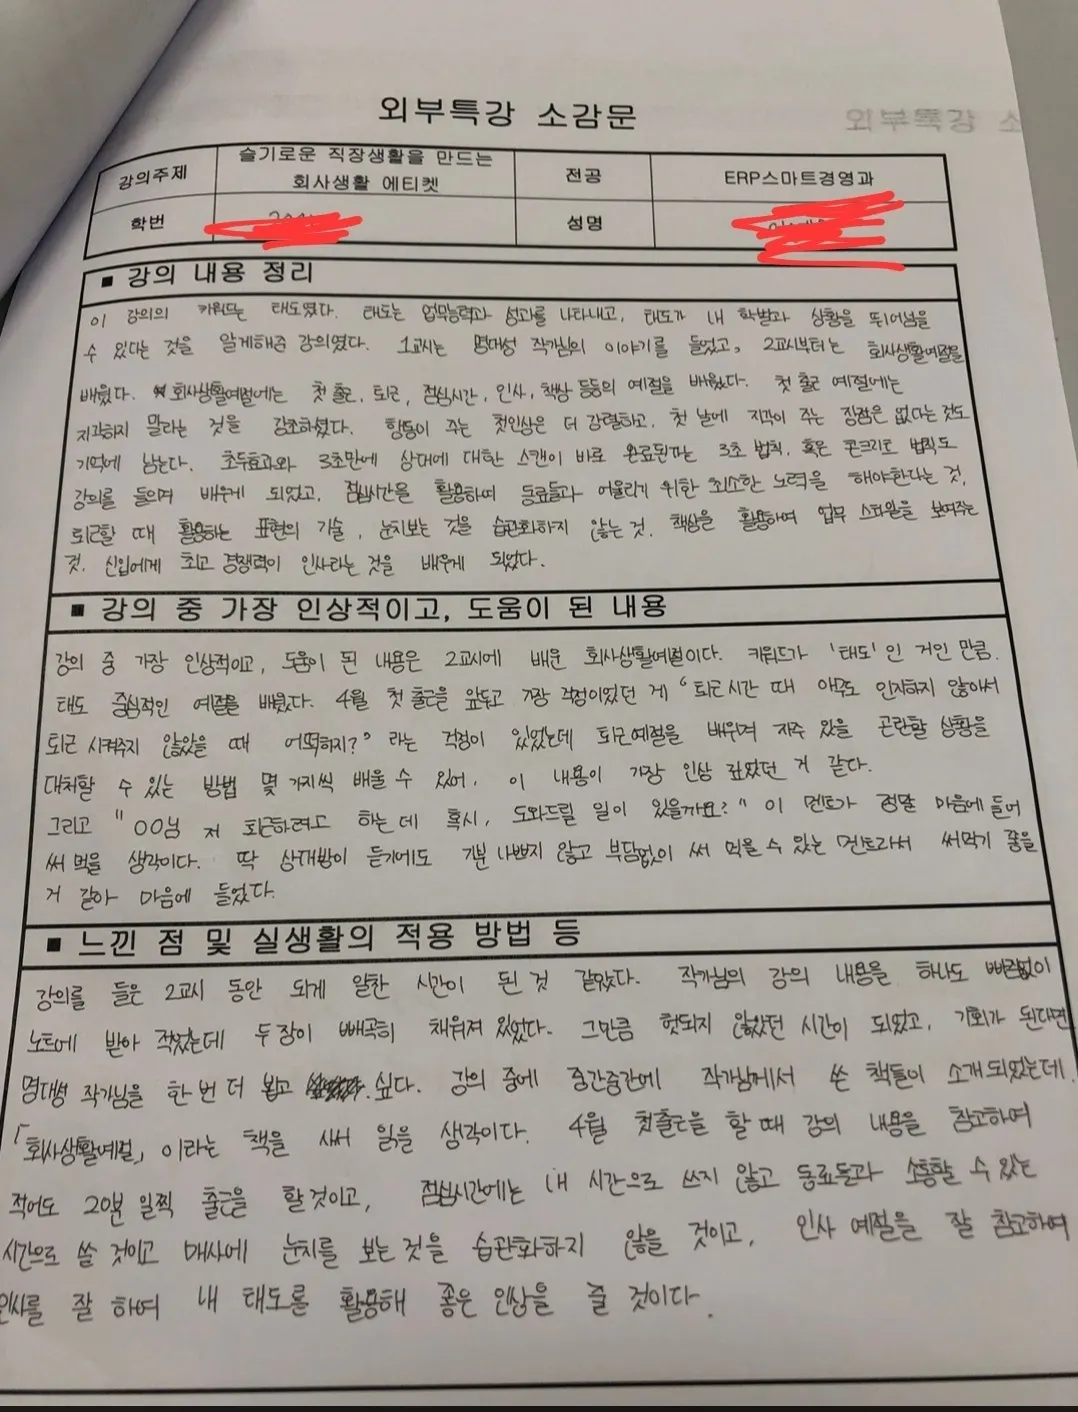 외부특강 소감문
강의주제
슬기로운 직장생활을 만드는
회사생활 에티켓
전공
ERP스마트경영과
학번
성명
■ 강의 내용 정리
이 강의의 키워드는 태도였다. 태도는 업무능력과 성과를 나타내고, 태도가 내 학벌과 상황을 뛰어넘을
수 있다는 것을 알게해준 강의였다. 1교시는 명대성 작가님의 이야기를 들었고, 2교시부터는 회사생활예절을
배웠다. 회사생활예절에는 첫 출근, 퇴근, 점심시간, 인사, 책상 등등의 예절을 배웠다. 첫 출근 예절에는
지각하지 말라는 것을 강조하셨다. 행동이 주는 첫인상은 더 강렬하고, 첫 날에 지각이 주는 장점은 없다는 것도
기억에 남는다. 초두효과와 3초만에 상대에 대한 스캔이 바로 완료된다는 3초 법칙, 혹은 콘크리트 법칙도
강의를 들으며 배우게 되었고, 점심시간을 활용하여 동료들과 어울리기 위한 최소한 노력을 해야한다는 것,
퇴근할 때 활용하는 표현의 기술, 눈치보는 것을 습관화하지 않는 것, 책상을 활용하여 업무 스타일을 보여주는
것, 신입에게 최고 경쟁력이 인사라는 것을 배우게 되었다.
■ 강의 중 가장 인상적이고, 도움이 된 내용
강의 중 가장 인상적이고, 도움이 된 내용은 2교시에 배운 회사생활예절이다. 키워드가 '태도'인 거인 만큼,
태도 중심적인 예절을 배웠다. 4월 첫 출근을 앞두고 가장 걱정이었던 게 "퇴근시간 때 아무도 인지하지 않아서
퇴근 시켜주지 않았을 때 어떡하지?" 라는 걱정이 있었는데 퇴근예절을 배우며 자주 있을 곤란할 상황을
대처할 수 있는 방법 몇 가지씩 배울 수 있어, 이 내용이 가장 인상 깊었던 거 같다.
그리고 "OO님 저 퇴근하려고 하는데 혹시, 도와드릴 일이 있을까요?" 이 멘트가 정말 마음에 들어
써 먹을 생각이다. 딱 상대방이 듣기에도 기분 나쁘지 않고 부담없이 써 먹을 수 있는 멘트라서 써먹기 좋을
거 같아 마음에 들었다.
■ 느낀 점 및 실생활의 적용 방법 등
강의를 들은 2교시 동안 되게 알찬 시간이 된 것 같았다. 작가님의 강의 내용을 하나도 빠짐없이
노트에 받아 적었는데 두 장이 빼곡히 채워져 있었다. 그만큼 헛되지 않았던 시간이 되었고, 기회가 된다면
명대성 작가님을 한 번 더 뵙고 싶다. 강의 중에 중간중간에 작가님께서 쓴 책들이 소개되었는데
「회사생활예절」이라는 책을 사서 읽을 생각이다. 4월 첫출근을 할 때 강의 내용을 참고하여
적어도 20분 일찍 출근을 할 것이고, 점심시간에는 내 시간으로 쓰지 않고 동료들과 소통할 수 있는
시간으로 쓸 것이고 매사에 눈치를 보는 것을 습관화하지 않을 것이고, 인사 예절을 잘 참고하여
인사를 잘 하여 내 태도를 활용해 좋은 인상을 줄 것이다.
외부특강 소